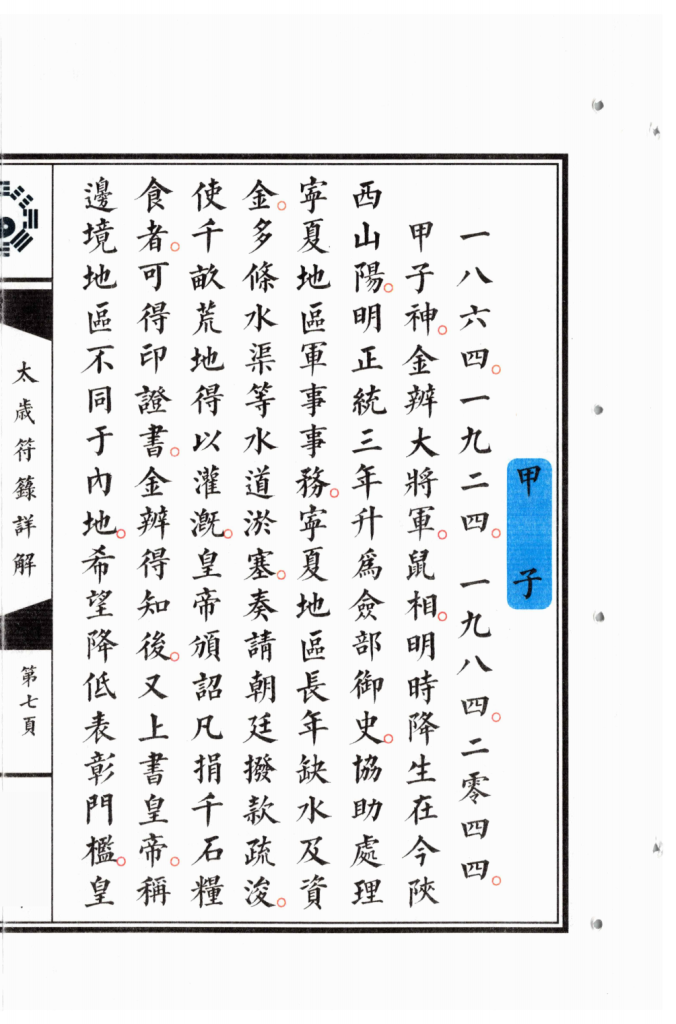 甲子
一八六四。一九二四。一九八四。二零四四。
甲子神。金辨大將軍。鼠相。明時降生在今陝
西山陽。明正統三年升爲僉部御史。協助處理
寧夏地區軍事事務。寧夏地區長年缺水及資
金。多條水渠等水道淤塞。奏請朝廷撥款疏浚。
使千畝荒地得以灌溉。皇帝頒詔凡捐千石糧
食者。可得印證書。金辨得知後。又上書皇帝。稱
邊境地區不同于內地。希望降低表彰門檻。皇
太歲符籙詳解
第七頁